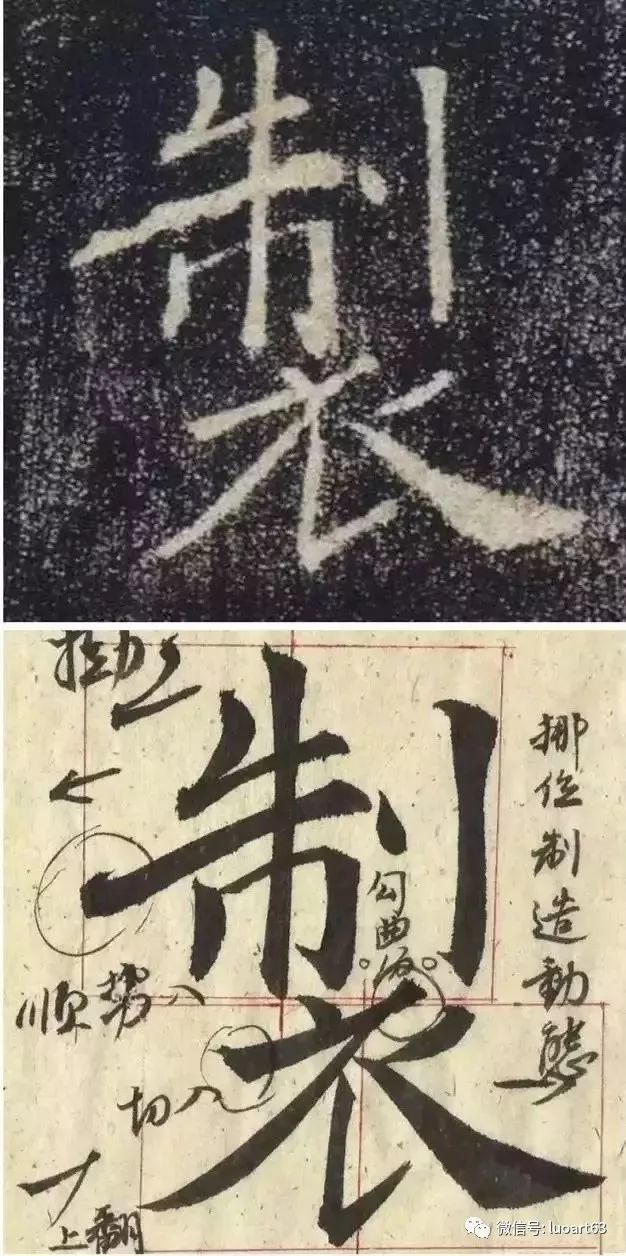 製
拗
製
挪位制造動態
顺势入
切入
上翻
微信号: luoart63